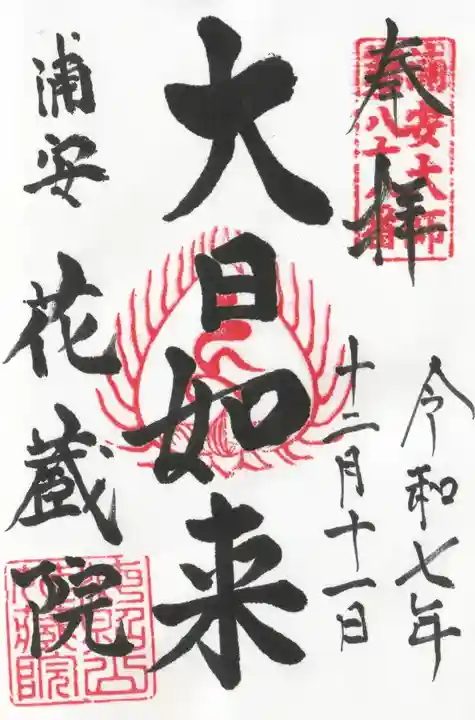 奉拝
浦安大師
令和七年
十二月十一日
大日如来
浦安 花蔵院